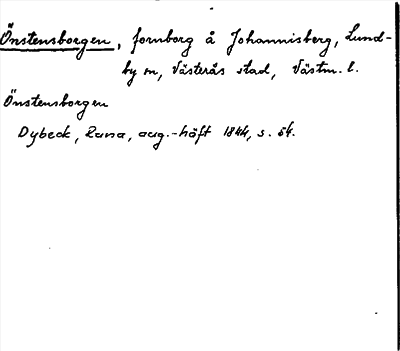 Önstensborgen, fornborg å Johannisberg, Lund-
by sn, Västerås stad, Västm. l.
Önstensborgen
Dybeck, Runa, aug.-häft 1844, s. 54.